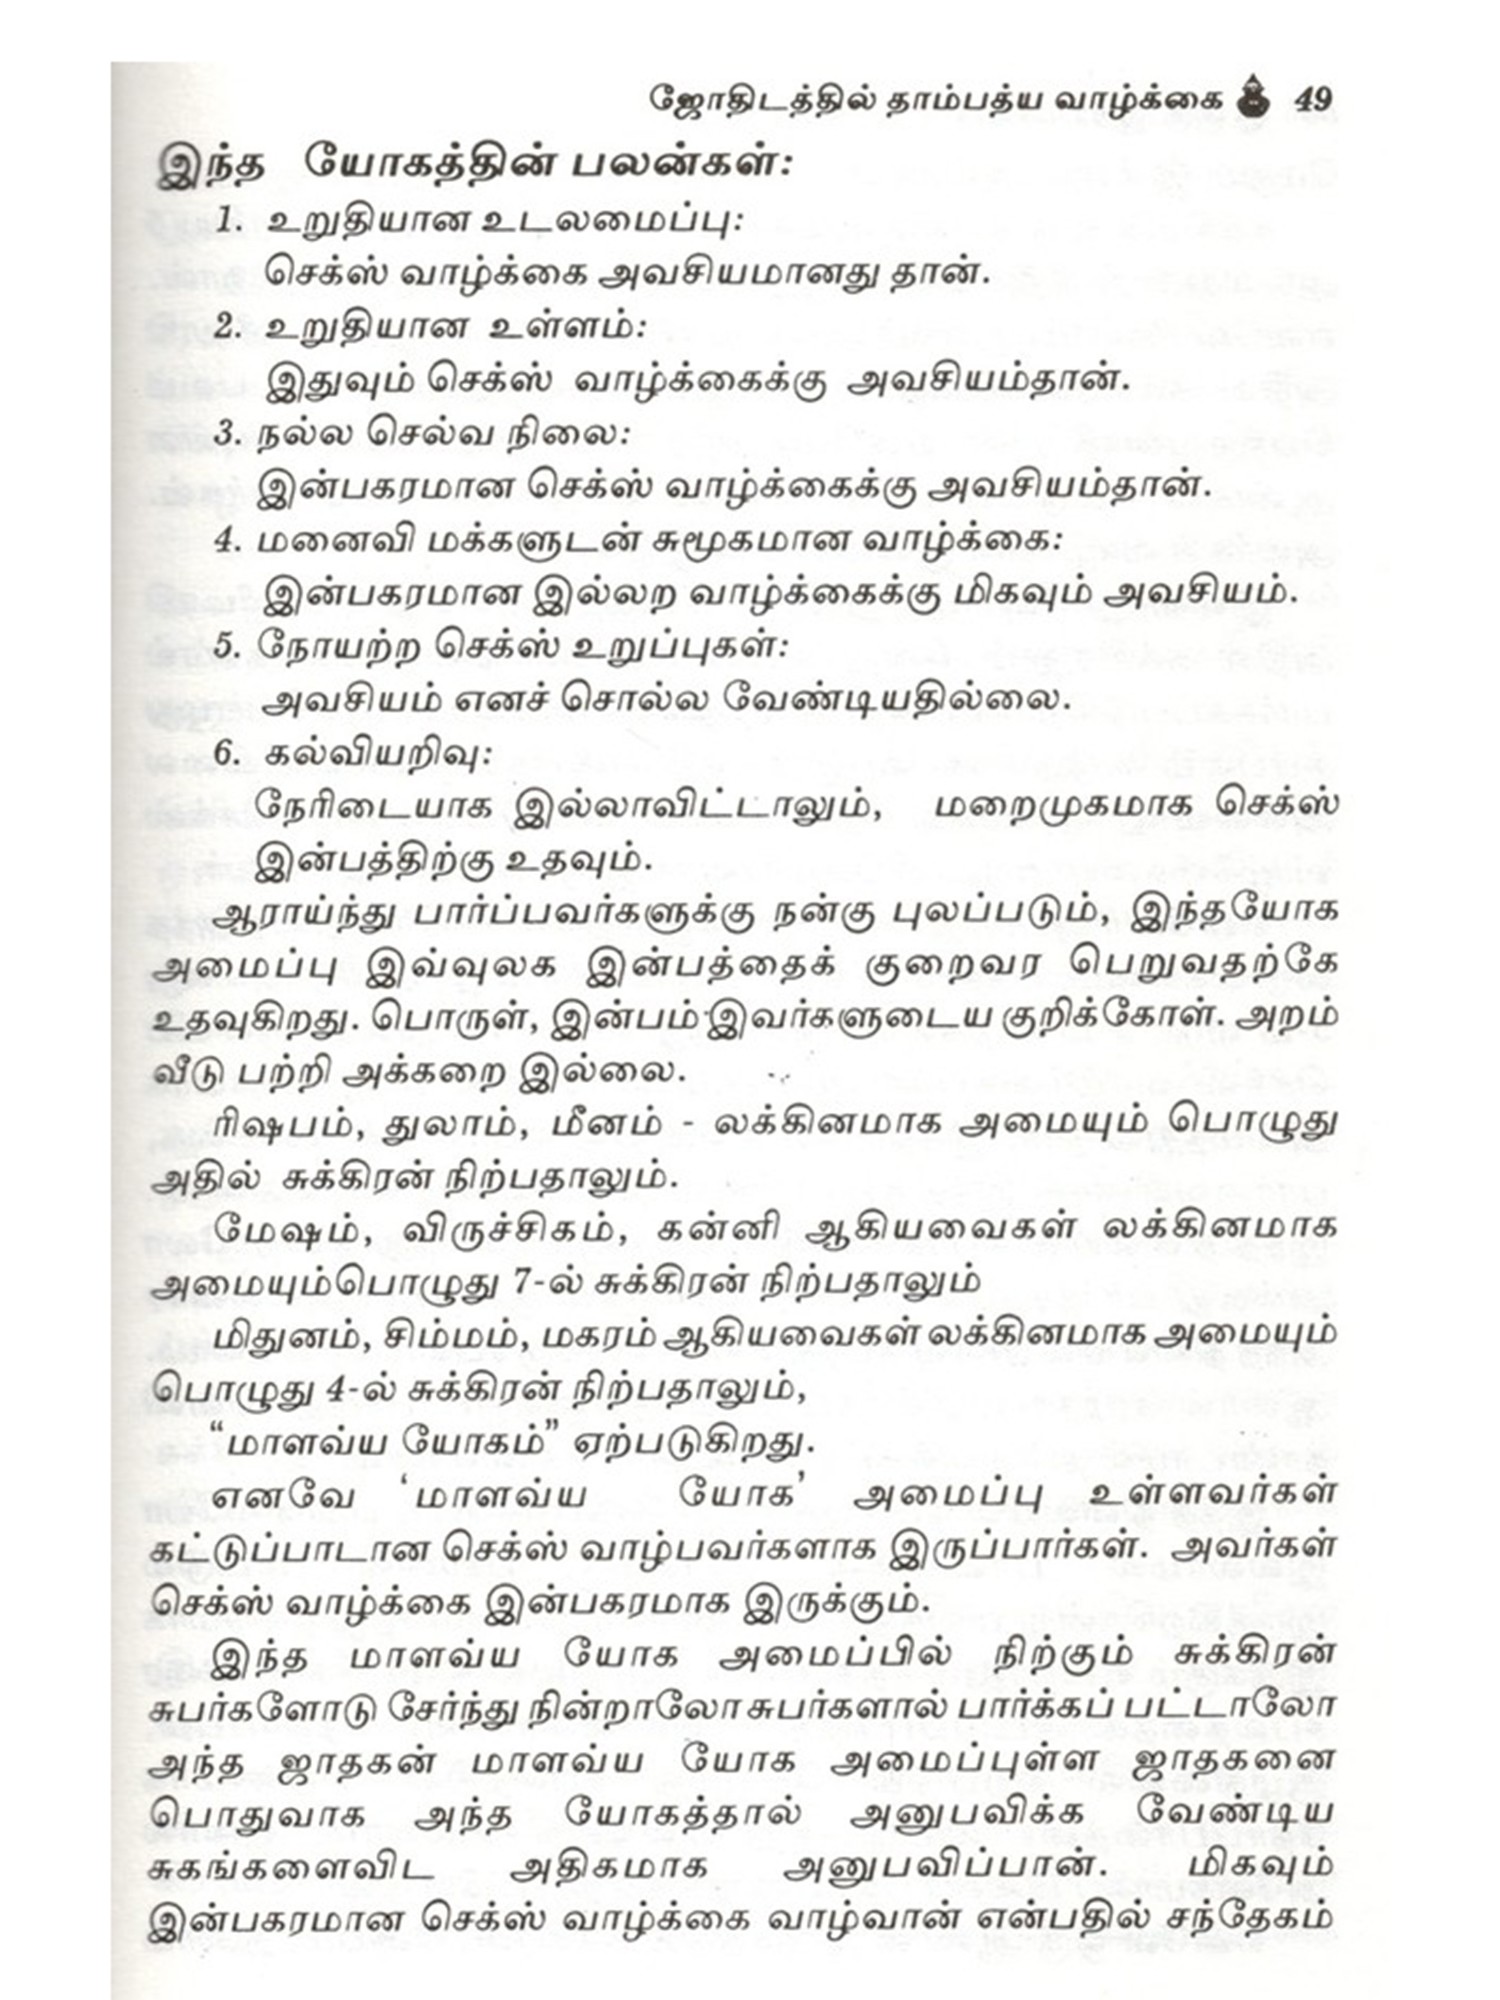 ஜோதிடத்தில் தாம்பத்ய வாழ்க்கை 49
இந்த யோகத்தின் பலன்கள்:
1. உறுதியான உடலமைப்பு:
செக்ஸ் வாழ்க்கை அவசியமானது தான்.
2. உறுதியான உள்ளம்:
இதுவும் செக்ஸ் வாழ்க்கைக்கு அவசியம்தான்.
3. நல்ல செல்வ நிலை:
இன்பகரமான செக்ஸ் வாழ்க்கைக்கு அவசியம்தான்.
4. மனைவி மக்களுடன் சுமூகமான வாழ்க்கை:
இன்பகரமான இல்லற வாழ்க்கைக்கு மிகவும் அவசியம்.
5. நோயற்ற செக்ஸ் உறுப்புகள்:
அவசியம் எனச் சொல்ல வேண்டியதில்லை.
6. கல்வியறிவு:
நேரிடையாக இல்லாவிட்டாலும், மறைமுகமாக செக்ஸ்
இன்பத்திற்கு உதவும்.
ஆராய்ந்து பார்ப்பவர்களுக்கு நன்கு புலப்படும், இந்தயோக
அமைப்பு இவ்வுலக இன்பத்தைக் குறைவர பெறுவதற்கே
உதவுகிறது. பொருள், இன்பம் இவர்களுடைய குறிக்கோள். அறம்
வீடு பற்றி அக்கறை இல்லை.
ரிஷபம், துலாம், மீனம் - லக்கினமாக அமையும் பொழுது
அதில் சுக்கிரன் நிற்பதாலும்.
மேஷம், விருச்சிகம், கன்னி ஆகியவைகள் லக்கினமாக
அமையும்பொழுது 7-ல் சுக்கிரன் நிற்பதாலும்
மிதுனம், சிம்மம், மகரம் ஆகியவைகள் லக்கினமாக அமையும்
பொழுது 4-ல் சுக்கிரன் நிற்பதாலும்,
“மாளவ்ய யோகம்” ஏற்படுகிறது.
எனவே ‘மாளவ்ய யோக’ அமைப்பு உள்ளவர்கள்
கட்டுப்பாடான செக்ஸ் வாழ்பவர்களாக இருப்பார்கள். அவர்கள்
செக்ஸ் வாழ்க்கை இன்பகரமாக இருக்கும்.
இந்த மாளவ்ய யோக அமைப்பில் நிற்கும் சுக்கிரன்
சுபர்களோடு சேர்ந்து நின்றாலோ சுபர்களால் பார்க்கப் பட்டாலோ
அந்த ஜாதகன் மாளவ்ய யோக அமைப்புள்ள ஜாதகனை
பொதுவாக அந்த யோகத்தால் அனுபவிக்க வேண்டிய
சுகங்களைவிட அதிகமாக அனுபவிப்பான். மிகவும்
இன்பகரமான செக்ஸ் வாழ்க்கை வாழ்வான் என்பதில் சந்தேகம்